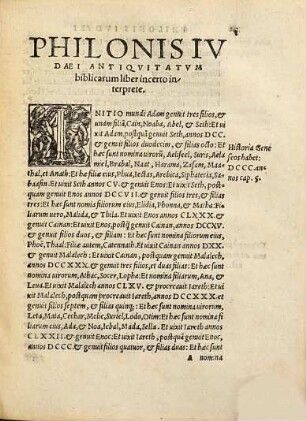 PHILONIS IV
DAEI ANTIQVITATVM
biblicarum liber incerto in-
terprete.
INITIO mundi Adam genuit tres filios, &
unam filiã, Cain, Noaba, Abel, & Seth: Et ui
xit Adam, postquã genuit Seth, annos DCC.
& genuit filios duodecim, & filias octo: Et
hæc sunt nomina uirorũ, Aeliseel, Suris, Aela
miel, Brabal, Naat, Harama, Zasam, Maa-
thal, et Anath: Et hæ filiæ eius, Phua, Iectas, Arebica, Siphatecia, Sa-
ba asin. Et uixit Seth annos CV. & genuit Enos: Et uixit Seth, post-
quam genuit Enos annos DCCVII. & genuit filios tres, & filias
duas: Et hæc sunt nomina filiorum eius, Elidia, Phonna, & Matha: fi
liarum uero, Malida, & Thila. Et uixit Enos annos CLXXX. &
genuit Cainan: Et uixit Enos, postquã genuit Cainan, annos DCC
XV. & genuit filios duos, & filiam: Et hæc sunt nomina filiorum eius,
Phoë, Thaal: Filiæ autem, Catennath. Et uixit Cainan annos DXX.
& genuit Malaloch: Et uixit Cainan, postquam genuit Malalech,
annos DCCXXX. & genuit tres filios, et duas filias: Et hæc sunt
nomina uirorum, Athac, Socer, Lopha: et nomina filiarum, Ana, &
Leua. Et uixit Malalech annos CLXV. & genuit Iareth: Et ui-
xit Malalech, postquam procreauit Iareth, annos DCCXXX. et
genuit filios septem, & filias quinq;: Et hæc sunt nomina uirorum,
Leta, Mata, Cechar, Melie, Suriel, Lodo, Otim: Et hæc sunt nomina fi
liarum eius, Ada, & Noa, Iebal, Mada, Sella. Et uixit Iareth annos
CLXXII. & genuit Enoc: Et uixit Iareth, postquã genuit Enoc,
annos DCCC. & genuit filios quatuor, & filias duas: Et hæc sunt
A nomina
Historia Gene
seos habet:
DCCC. an-
nos cap. 5.